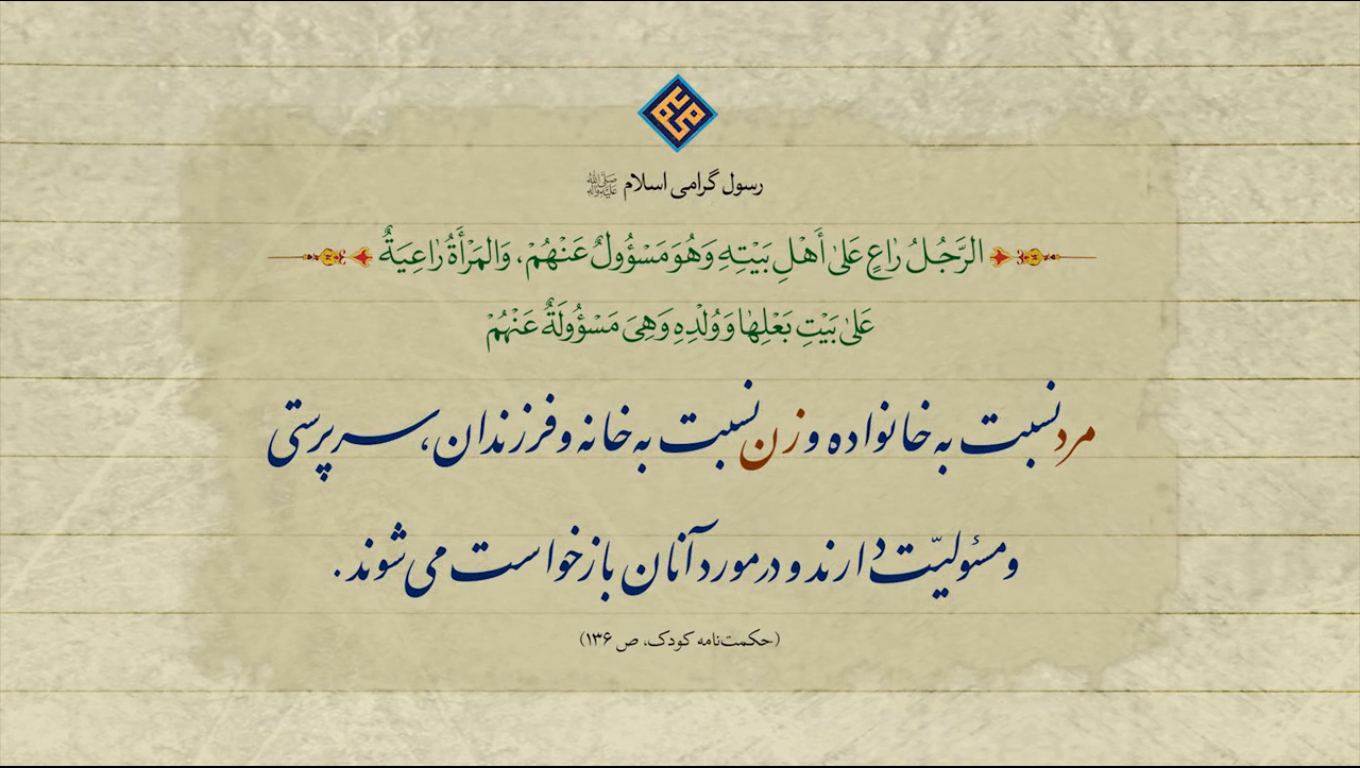 رسول گرامی اسلام ﷺ
الرَّجُلُ راعٍ عَلىٰ أَهْلِ بَيْتِهِ وَهُوَ مَسْؤُولٌ عَنْهُمْ، وَالمَرْأَةُ راعِيَةٌ
عَلىٰ بَيْتِ بَعْلِها وَوُلْدِهِ وَهِيَ مَسْؤُولَةٌ عَنْهُمْ
مرد نسبت به خانواده و زن نسبت به خانه و فرزندان، سرپرستی
و مسئولیّت دارند و در مورد آنان بازخواست می‌شوند.
(حکمت‌نامه کودک، ص ۱۳۶)